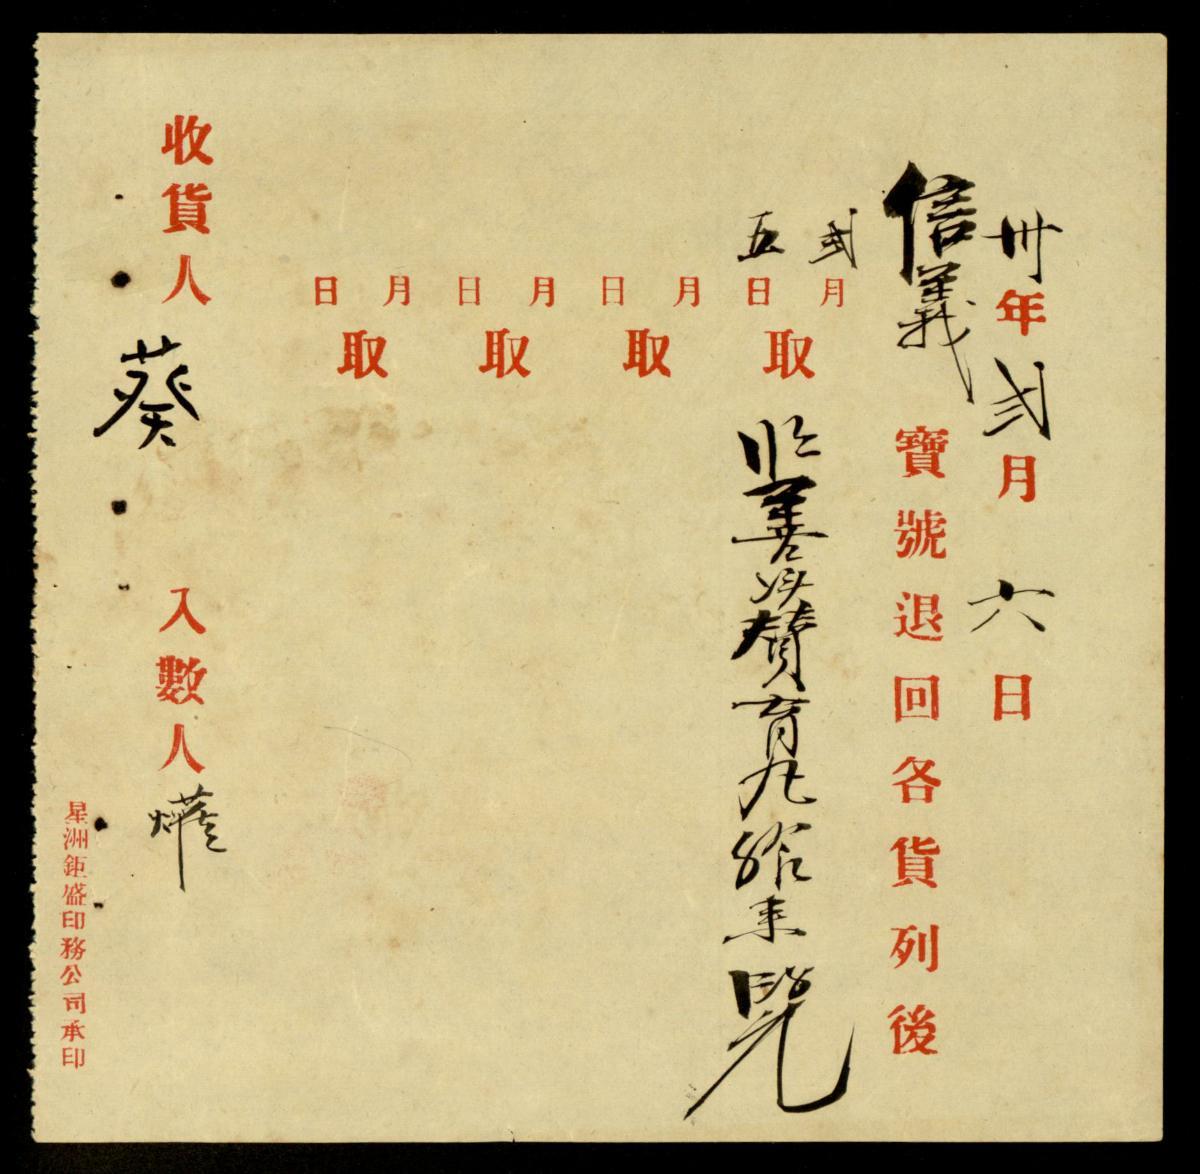 卅年弍月六日
信義寶號退回各貨列後
弍月五日取
月日取
月日取
月日取
收貨人葵
入數人
星洲鉅盛印務公司承印